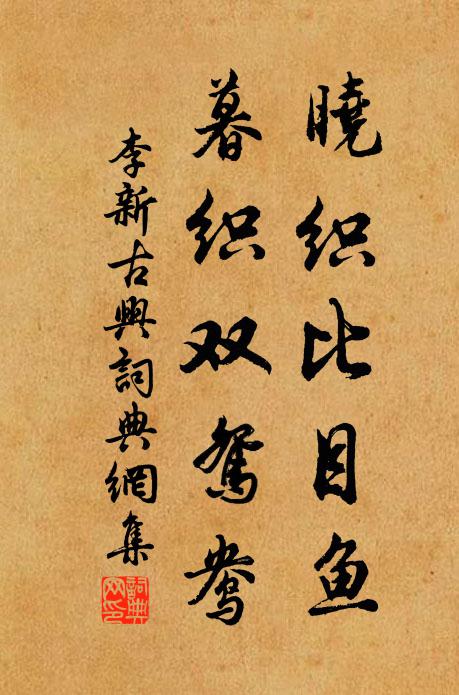 曉织比目鱼
暮织双鸳鸯
李新古典詞典網集
詞典
网印